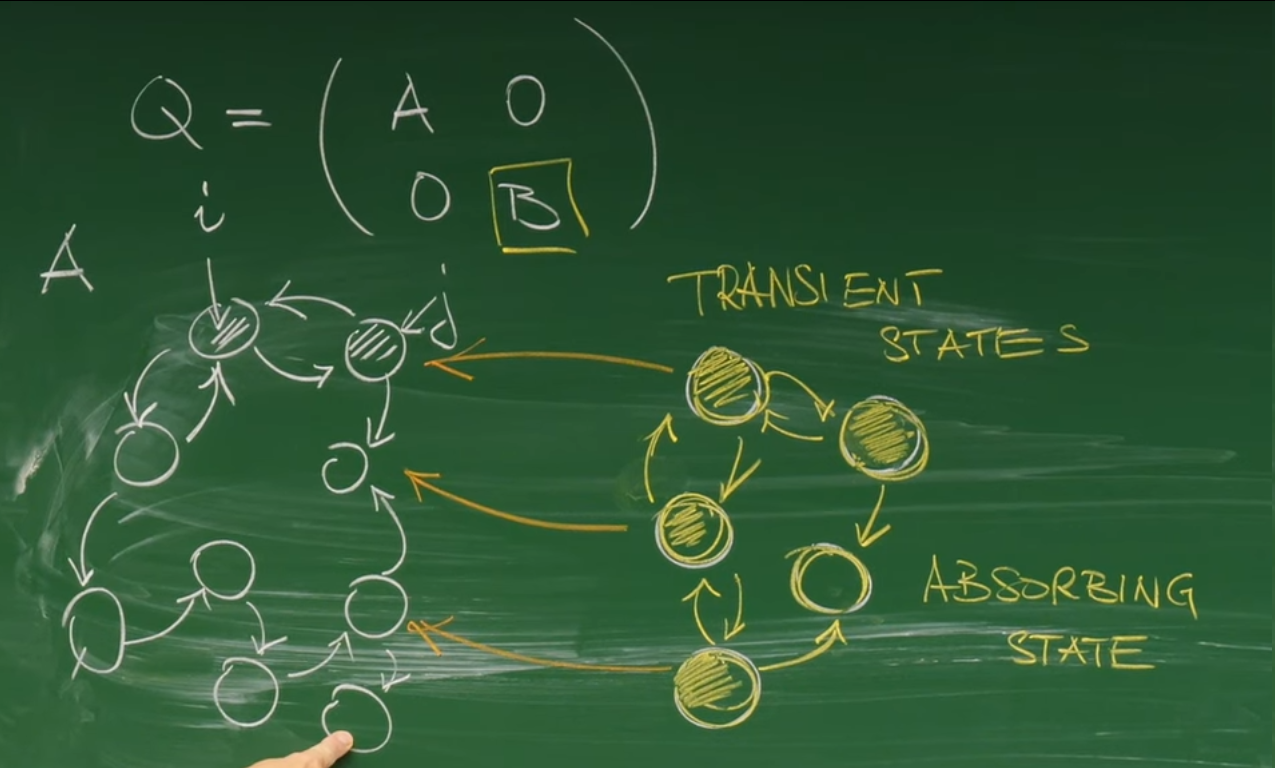 Q = ( A 0
0 B )
i
A
j
TRANSIENT
STATES
ABSORBING
STATE